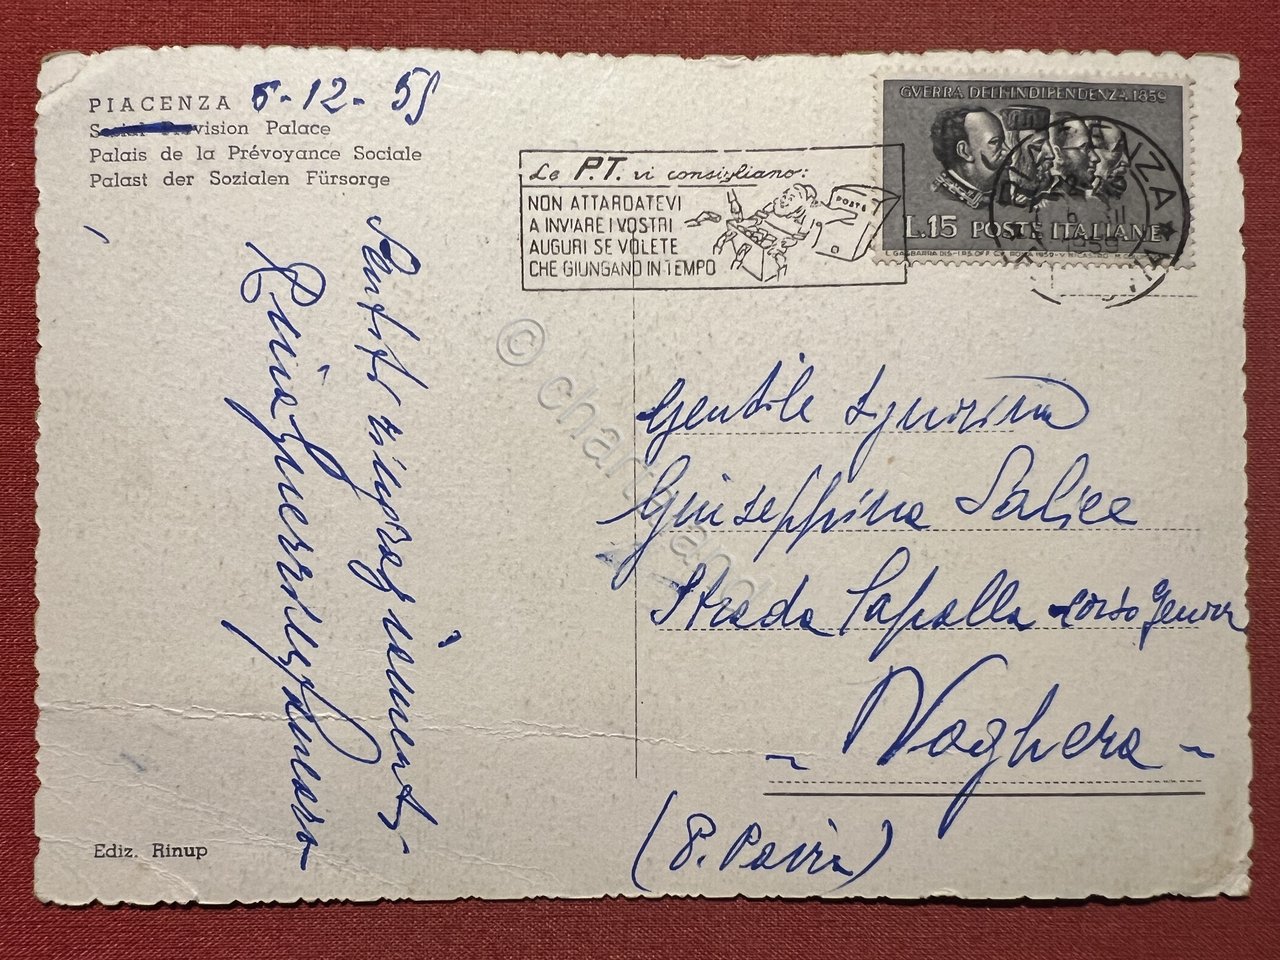 PIACENZA 5-12-59
Social Provision Palace
Palais de la Prévoyance Sociale
Palast der Sozialen Fürsorge
Le P.T. vi consigliano:
NON ATTARDATEVI
A INVIARE I VOSTRI
AUGURI SE VOLETE
CHE GIUNGANO IN TEMPO
POSTE
GVERRA DELL'INDIPENDENZA 1859
L.15 POSTE ITALIANE
1959
Sentiti ringraziamenti
© chartaland
Gentile Signorina
Giuseppina Salice
Strada Capalla corso Genova
~ Voghera ~
(P. Pavia)
Ediz. Rinup